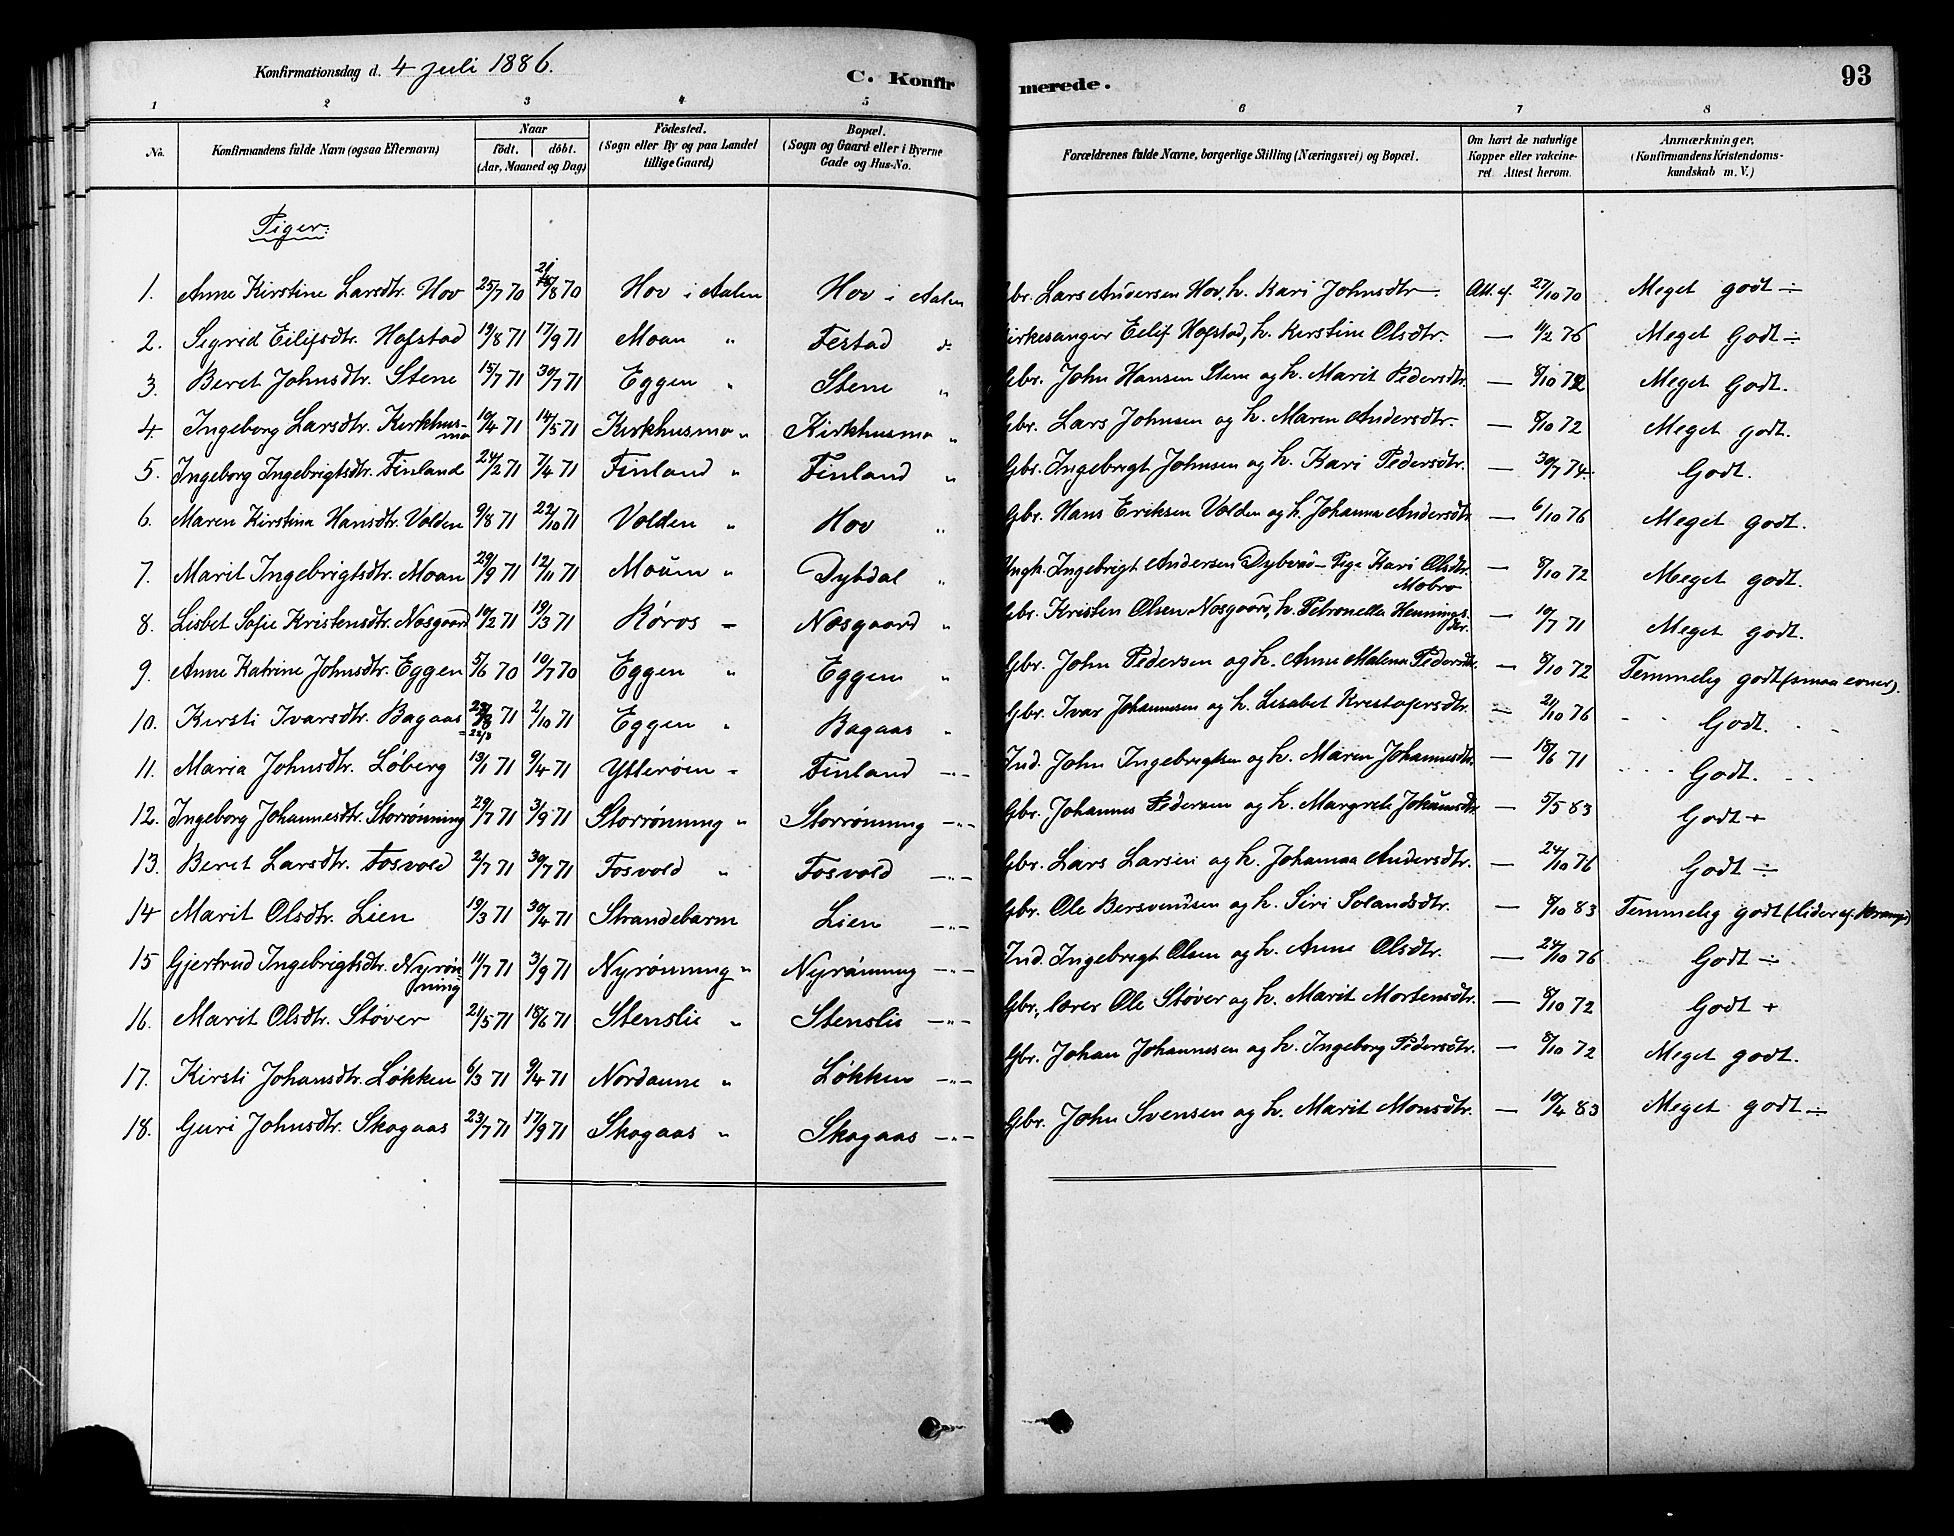 Konfirmationsdag d. 4 Juli 1886.
C. Konfirmerede.
93
1 2 3 4 5 6 7 8
No. Konfirmandens fulde Navn (ogsaa Efternavn) Naar födt. döbt. (Aar, Maaned og Dag) Födested. (Sogn eller By og paa Landet tillige Gaard) Bopæl. (Sogn og Gaard eller i Byerne Gade og Hus-No. Forældrenes fulde Navne, borgerlige Stilling (Næringsvei) og Bopæl. Om havt de naturlige Kopper eller vakcineret. Attest herom. Anmærkninger. (Konfirmandens Kristendomskundskab m. V.)
Piger:
1. Anne Kirstine Larsdtr. Hov 25/7 70 21/8 70 Hov i Aalen Hov i Aalen Gbr. Lars Andersen Hov, h. Kari Johnsdtr. Att. af. 27/10 70 Meget godt ÷
2. Sigrid Eilifsdtr. Hofstad 19/8 71 17/9 71 Moan " Festad do Kirkesanger Eilif Hofstad, h. Kerstine Olsdtr. — 11/2 76 Meget Godt ÷
3. Beret Johnsdtr. Stene 15/7 71 30/7 71 Eggen " Stene " Gbr. John Hansen Stene og h. Marit Pedersdtr. — 8/10 72 Meget Godt.
4. Ingeborg Larsdtr. Kirkhusmo 10/4 71 14/5 71 Kirkhusmo " Kirkhusmo " Gbr. Lars Johnsen og h. Maren Andersdtr. — 8/10 72 Meget godt.
5. Ingeborg Ingebrigtsdtr. Finland 24/2 71 7/4 71 Finland " Finland " Gbr. Ingebrigt Johnsen og h. Kari Pedersdtr. — 30/7 74. Godt.
6. Maren Kirstina Hansdtr. Volden 9/8 71 22/10 71 Volden " Hov " Gbr. Hans Eriksen Volden og h. Johanna Andersdtr. — 6/10 76 Meget godt.
7. Marit Ingebrigtsdtr. Moan 29/9 71 12/11 71 " Dybdal " Ungk. Ingebrigt Andersen — Pige Kari Olsdtr. Mobro — 8/10 72 Meget godt.
8. Lisbet Sofie Kristensdtr. Nosgaard 10/2 71 19/3 71 Røros — Nosgaard " Gbr. Kristen Olsen Nosgaard, h. Petronella Henningsdtr. — 10/7 71 Meget godt.
9. Anne Katrine Johnsdtr. Eggen 5/6 70 10/7 70 Eggen " Eggen " Gbr. John Pedersen og h. Anne Malena Pedersdtr. — 8/10 72 Temmelig godt (smaa evner).
10. Kirsti Ivarsdtr. Bagaas 22/8 71 2/10 71 Eggen " Bagaas " Gbr. Ivar Johannesen og h. Lisabet Kristofersdtr. — 21/10 76 Godt.
11. Maria Johnsdtr. Løberg 13/1 71 9/4 71 Ytterøen — Finland —"— Ind. John Ingebrigtsen og h. Maren Johannesdtr. — 18/6 71 Godt.
12. Ingeborg Johannesdtr. Storrønning 29/7 71 3/9 71 Storrønning " Storrønning —"— Gbr. Johannes Pedersen og h. Margrete Johansdtr. — 5/5 83 Godt +
13. Beret Larsdtr. Fosvold 2/7 71 30/7 71 Fosvold " Fosvold —"— Gbr. Lars Larsen og h. Johanna Andersdtr. — 24/10 76 Godt ÷
14 Marit Olsdtr. Lien 19/3 71 30/4 71 Strandebarm Lien —"— Gbr. Ole Bersvendsen og h. Siri Solandsdtr. — 8/10 83 Temmelig godt (lider af
15 Gjertrud Ingebrigtsdtr. Nyrønning 14/7 71 3/9 71 Nyrønning " Nyrønning —"— Ind. Ingebrigt Olsen og h. Anne Olsdtr. — 24/10 76 Godt ÷
16. Marit Olsdtr. Støver 21/5 71 18/6 71 Stenslie " Stenslie —"— Gbr., lærer Ole Støver og h. Marit Mortensdtr. — 8/10 72 Godt +
17. Kirsti Johansdtr. Løkken 6/3 71 9/4 71 Nordaune " Løkken —"— Gbr. Johan Johannesen og h. Ingeborg Pedersdtr. — 8/10 72 Meget godt.
18. Guri Johnsdtr. Skogaas 23/7 71 17/9 71 Skogaas " Skogaas —"— Gbr. John Svensen og h. Marit Monsdtr. — 10/4 83 Meget godt ÷